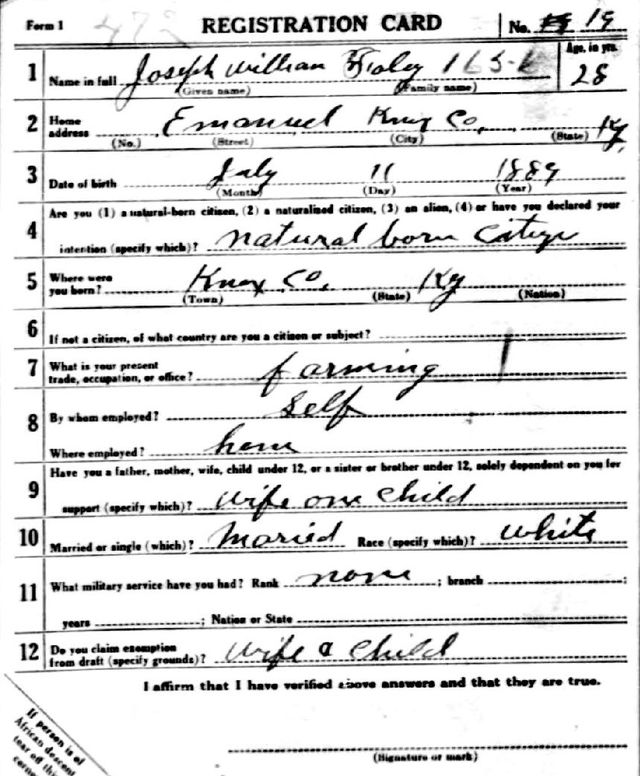 Form 1 REGISTRATION CARD No. 19
Age, in yrs.
1 Name in full Joseph William 28
(Given name) (Family name)
2 Home address Emanuel Knox Co, Ky,
(No.) (Street) (City) (State)
3 Date of birth July 11 1889
(Month) (Day) (Year)
Are you (1) a natural-born citizen, (2) a naturalized citizen, (3) an alien, (4) or have you declared your
4 intention (specify which)? natural born
5 Where were you born? Knox Co, Ky
(Town) (State) (Nation)
6 If not a citizen, of what country are you a citizen or subject?
7 What is your present trade, occupation, or office? farming
8 By whom employed? Self
Where employed? home
Have you a father, mother, wife, child under 12, or a sister or brother under 12, solely dependent on you for
9 support (specify which)? wife one child
10 Married or single (which)? Maried Race (specify which)? White
11 What military service have you had? Rank none ; branch ;
years ; Nation or State
12 Do you claim exemption from draft (specify grounds)? Wife & Child
I affirm that I have verified above answers and that they are true.
(Signature or mark)
If person is of
African descent
tear off this
corner